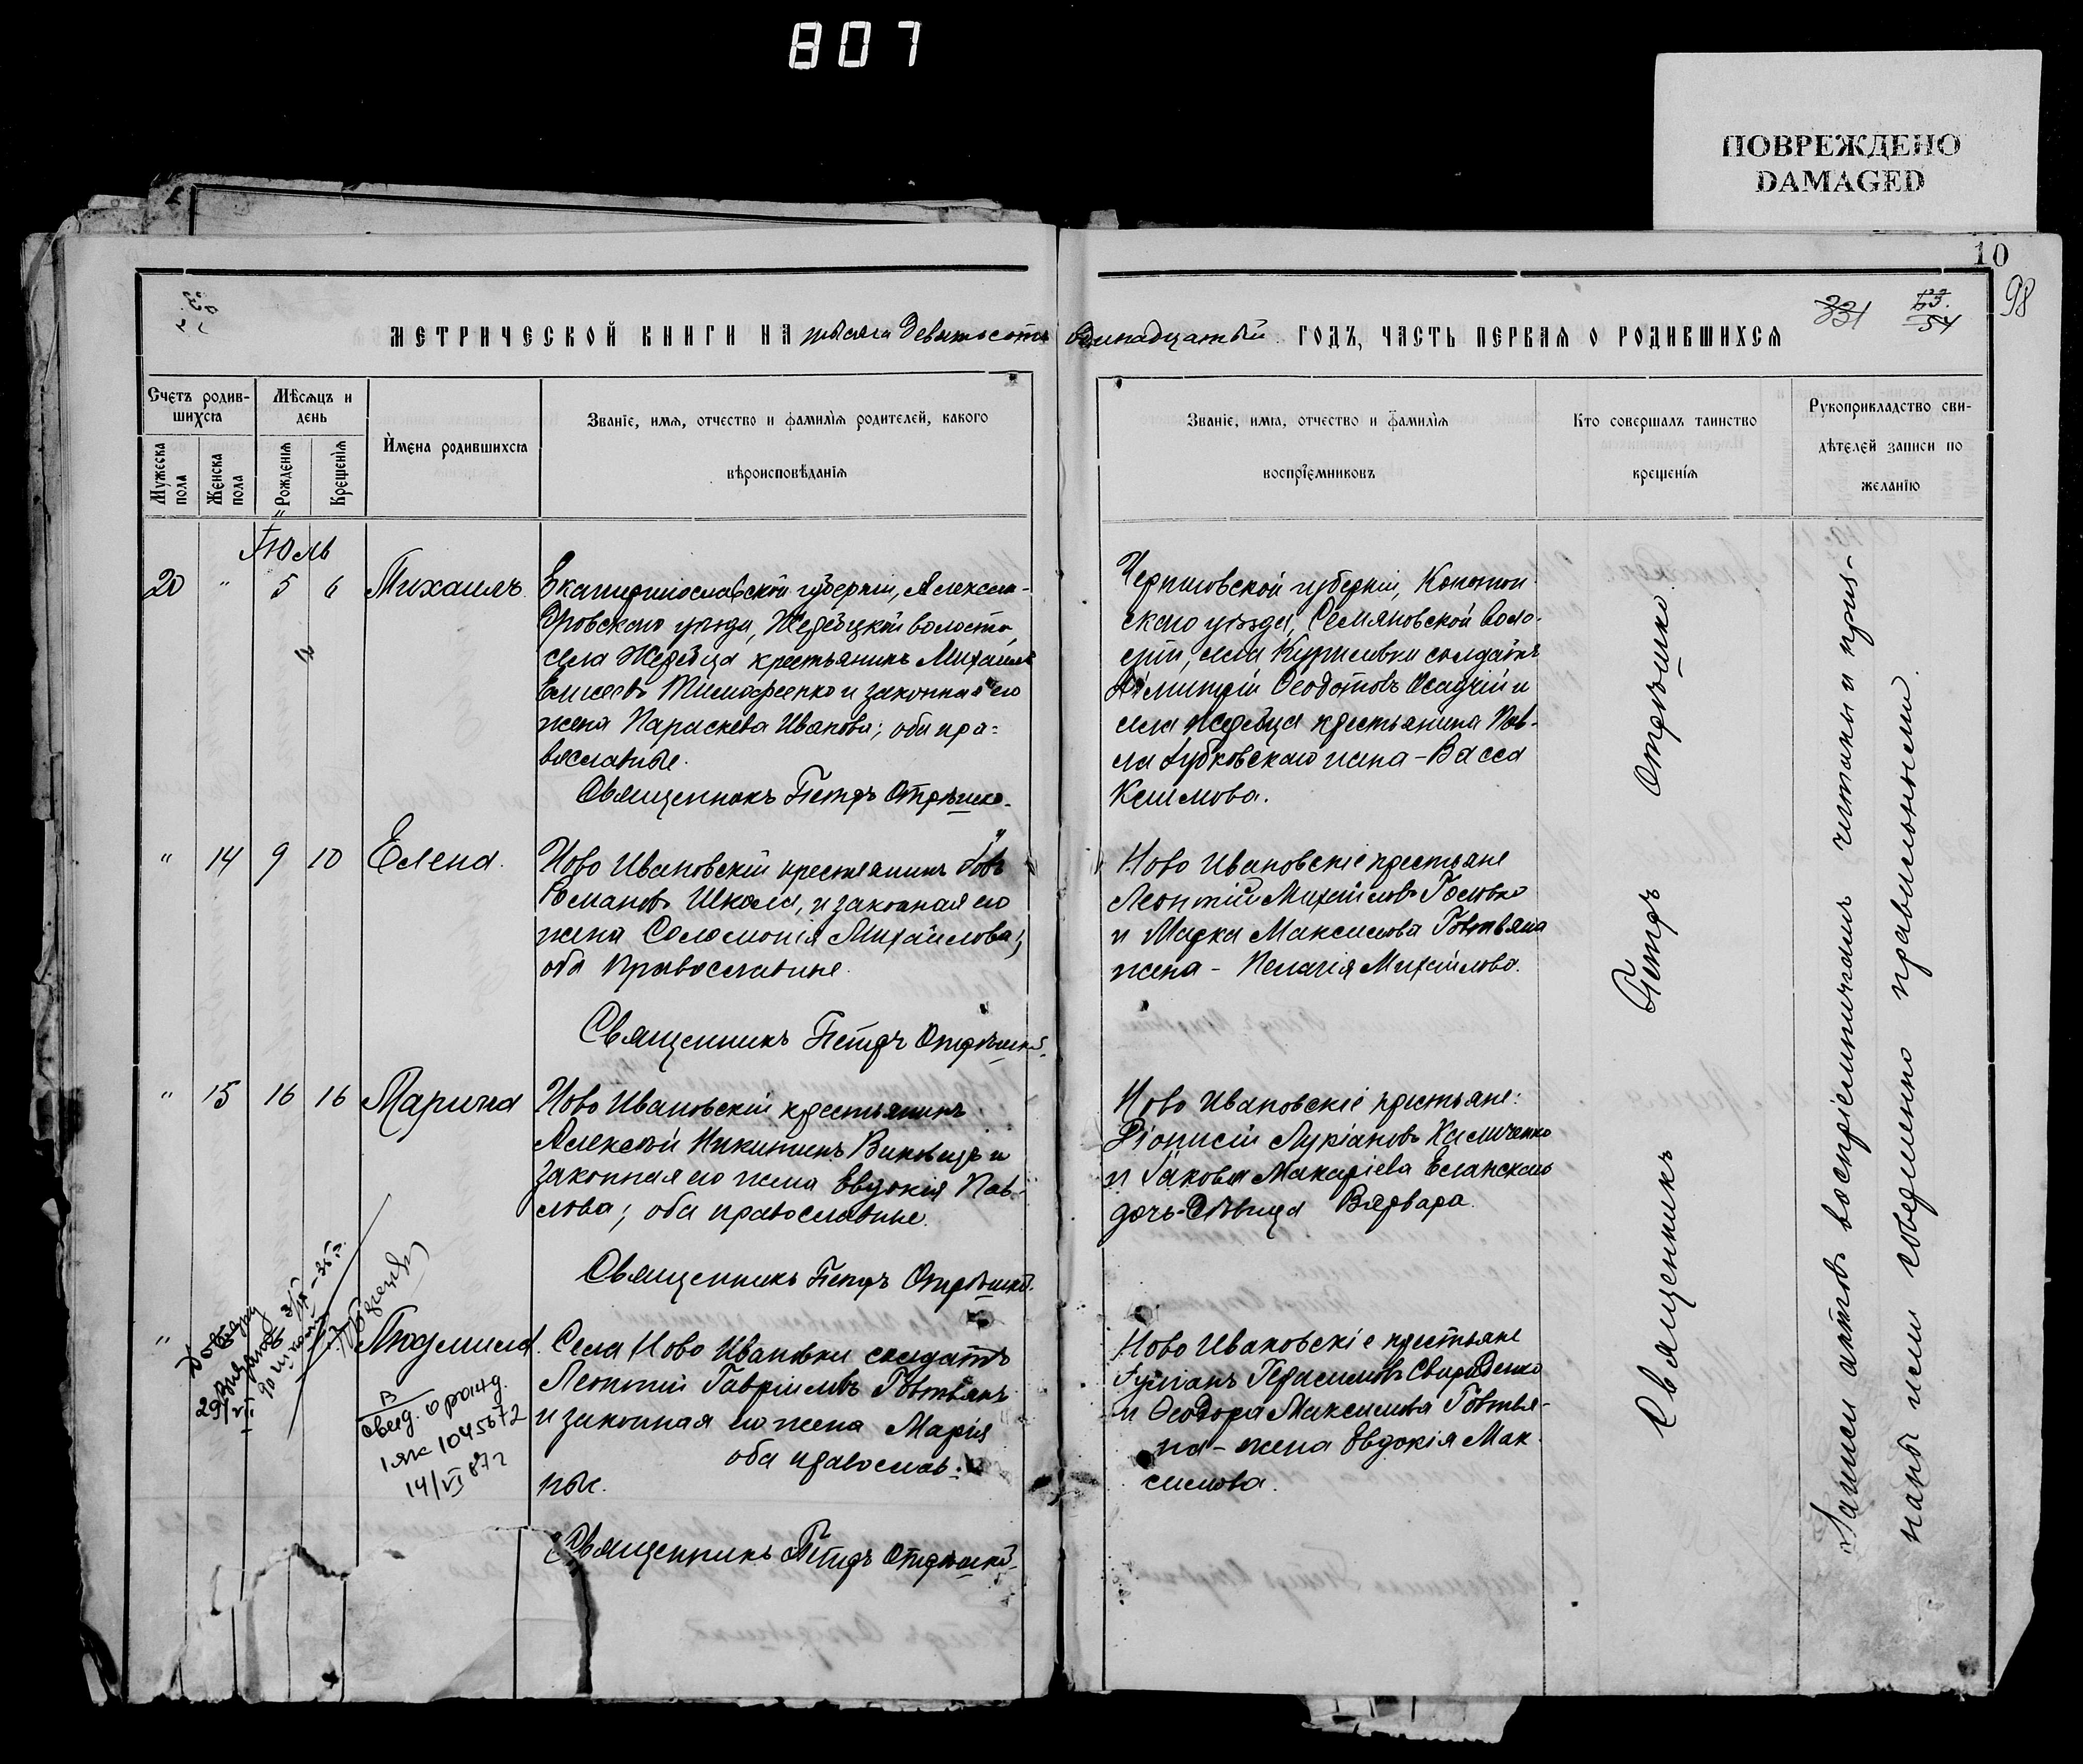 807
ПОВРЕЖДЕНО
DAMAGED
10
98
331
54
МЕТРИЧЕСКОЙ КНИГИ НА тысяча девятьсотъ одинадцатый ГОДЪ, ЧАСТЬ ПЕРВАЯ О РОДИВШИХСЯ
Счетъ родив-
шихся
Мужеска пола
Женска пола
Мѣсяцъ и
день
Рожденія
Крещенія
Имена родившихся
Званіе, имя, отчество и фамилія родителей, какого
вѣроисповѣданія
Званіе, имя, отчество и фамилія
воспріемниковъ
Кто совершалъ таинство
крещенія
Рукоприкладство сви-
дѣтелей записи по
желанію
Іюль
20 " 5 6 Михаилъ
Екатеринославской губерніи, Алексан-
дровскаго уѣзда, Жеребецкой волости,
села Жеребца крестьянинъ Михаилъ
Елисеевъ Тимофеенко и законная его
жена Параскева Иванова; оба пра-
вославные.
Священникъ Петръ Отрѣшко.
Черниговской губерніи, Конотоп-
скаго уѣзда, Семяновской воло-
сти, села Куриловки солдатъ
Димитрій Ѳеодотовъ Осадчій и
села Жеребца крестьянина Пав-
ла Зубковскаго жена - Васса
Климова.
" 14 9 10 Елена.
Ново Ивановскій крестьянинъ Іовъ
Романовъ Школа, и законная его
жена Соломонія Михайлова;
оба православные.
Священникъ Петръ Отрѣшко.
Ново Ивановскіе крестьяне
Леонтій Михайловъ Головко
и Марка Максимова Говтвяна
жена - Пелагія Михайлова.
" 15 16 16 Марина
Ново Ивановскій крестьянинъ
Алексѣй Никитинъ и
законная его жена Евдокія Пав-
лова; оба православные.
Священникъ Петръ Отрѣшко.
Ново Ивановскіе крестьяне:
Діонисій Лукіановъ Халиченко
и Іакова Макаріева Еланскаго
дочь-дѣвица Варвара.
" Людмила.
В
свид. о рожд.
1 ЯК 1045672
14/VI 87 г
Села Ново Ивановки солдатъ
Леонтій Гавріиловъ Говтвянъ
и законная его жена Марія
оба православ-
ные.
Священникъ Петръ Отрѣшко.
Ново Ивановскіе крестьяне
Іуліанъ Герасимовъ Свириденко
и Ѳеодора Максимова Говтвя-
на - жена Евдокія Мак-
симова.
Священникъ Петръ Отрѣшко.
Записи актовъ воспріемниками читаны и приз-
наны ими совершенно правильными.